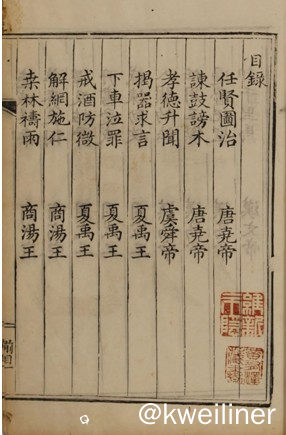 目録
任賢圖治 唐堯帝
諫鼓謗木 唐堯帝
孝德升聞 虞舜帝
揭器求言 夏禹王
下車泣罪 夏禹王
戒酒防微 夏禹王
解網施仁 商湯王
桒林禱雨 商湯王
@kweiliner